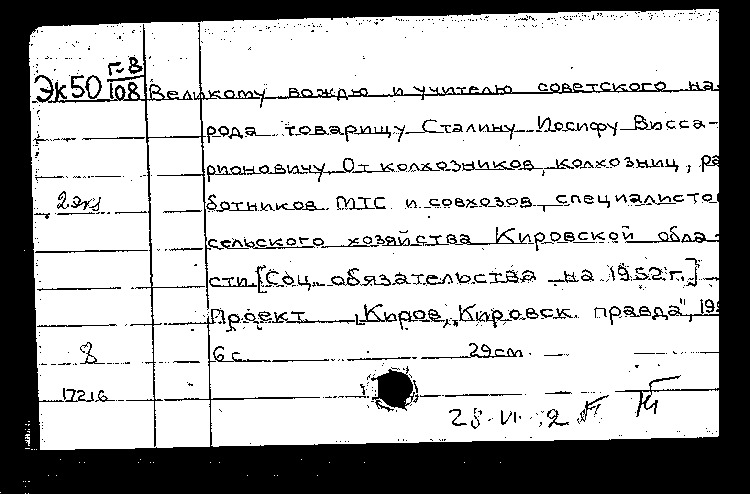 Эк50 Г-8/108 Великому вождю и учителю советского на-
рода товарищу Сталину Иосифу Висса-
рионовичу. От колхозников, колхозниц, ра
2 экз ботников МТС и совхозов, специалисто
сельского хозяйства Кировской обла-
сти. [Соц. обязательства на 1952 г.]
Проект. Киров, "Кировск. правда", 195
8 6 с. 29 см.
17216
28.VI